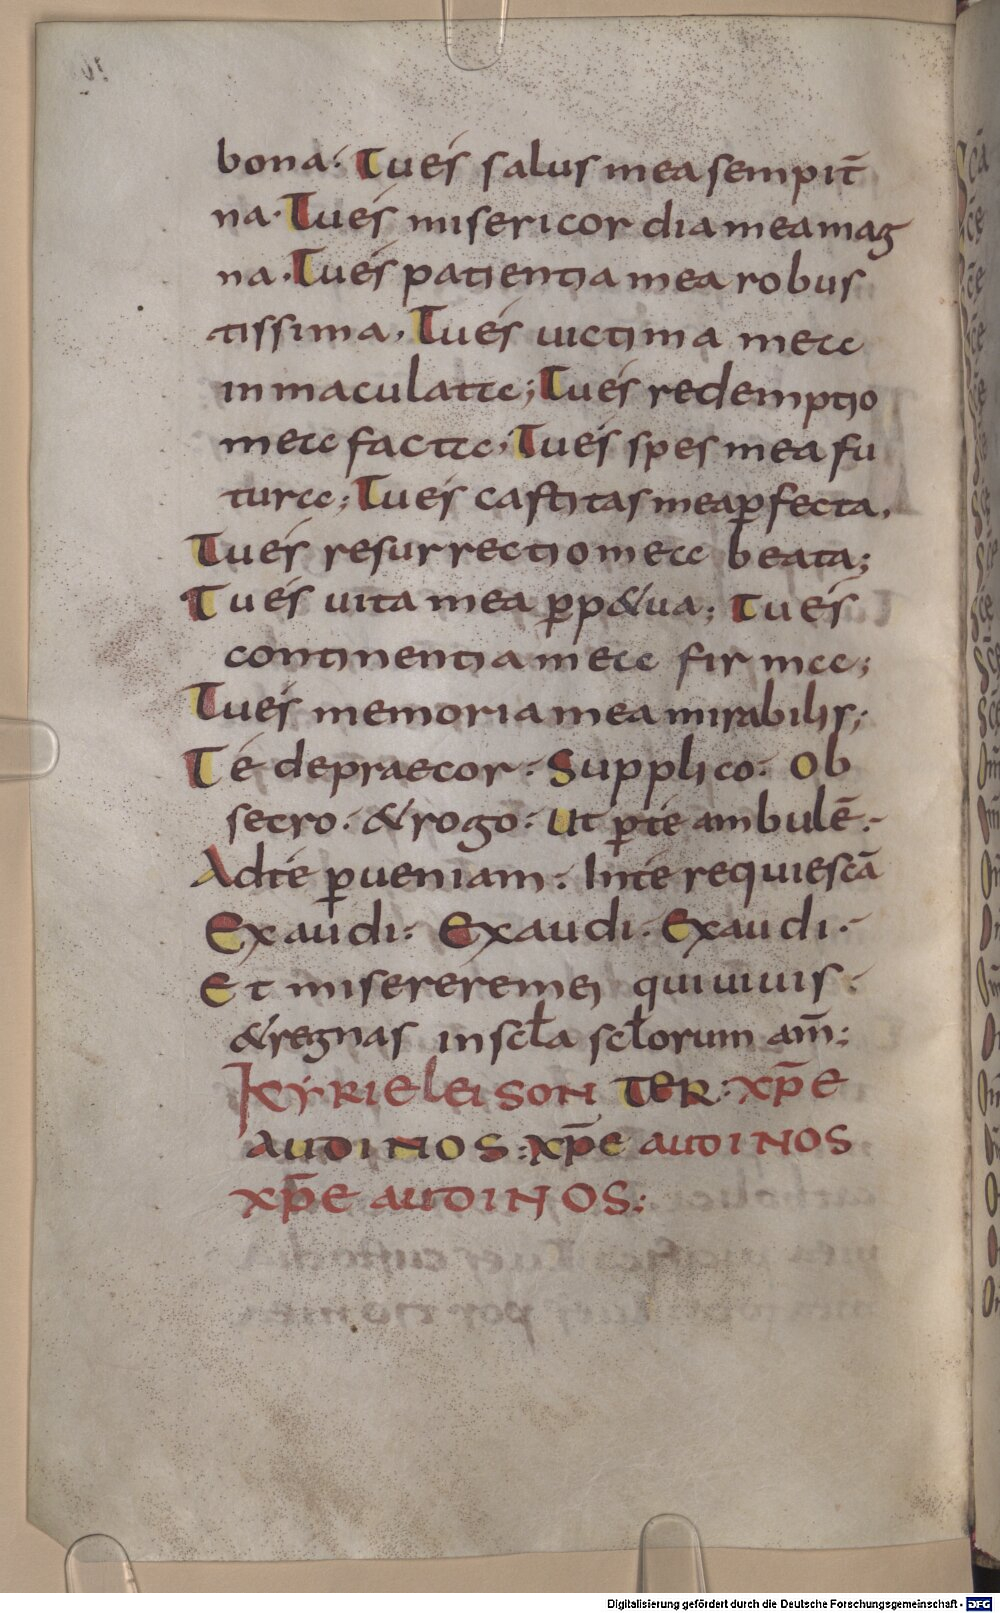 bona: Tu és salus mea sempit̄
na. Tu és misericordia mea mag
na. Tu és patientia mea robus
tissima. Tu és uictima mea
inmaculata; Tu és redemptio
mea facta. Tu és spes mea fu
tura; Tu és castitas mea ꝑfecta.
Tu és resurrectio mea beata;
Tu és uita mea ꝑp&ua; Tu és
continentia mea firma;
Tu és memoria mea mirabilis;
Té depraecor. Supplico. Ob
secro. & rogo. Ut ꝑ té ambulē.
Ad té ꝑueniam. In té requiescā
Exaudi. Exaudi. Exaudi.
Et miserere mei qui uiuis.
& regnas in scła scłorum am̄:
KYRIELEISON TER: XP̄E
AUDI NOS: XP̄E AUDI NOS
XP̄E AUDI NOS:
Digitalisierung gefördert durch die Deutsche Forschungsgemeinschaft - DFG